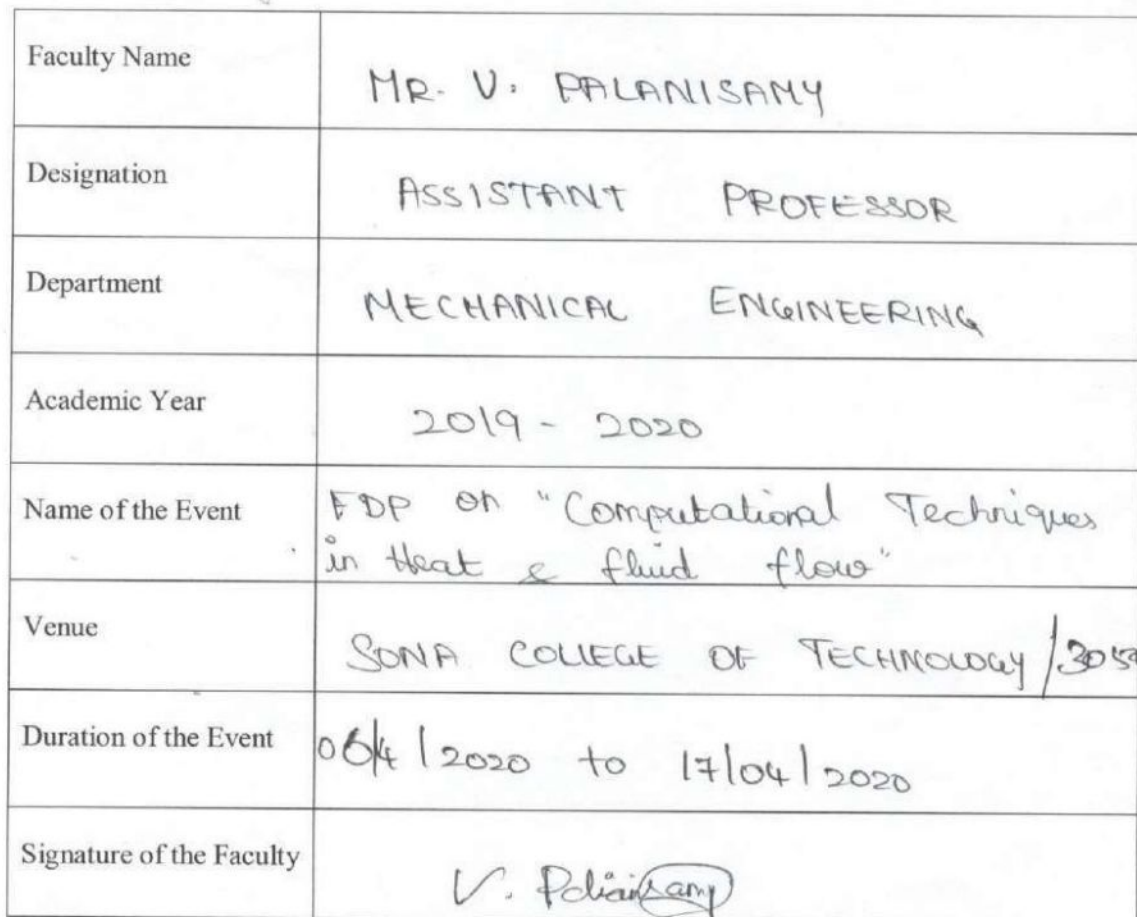 Faculty Name
MR. V. PALANISAMY
Designation
ASSISTANT PROFESSOR
Department
MECHANICAL ENGINEERING
Academic Year
2019 - 2020
Name of the Event
FDP on "Computational Techniques
in Heat & fluid flow"
Venue
SONA COLLEGE OF TECHNOLOGY /
Duration of the Event
06/4/2020 to 17/04/2020
Signature of the Faculty
V. Palanisamy